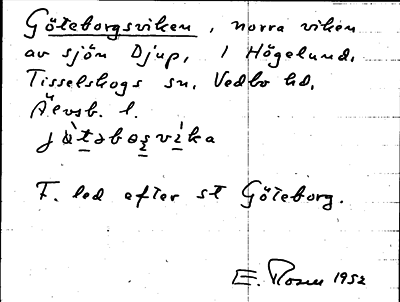 Göteborgsviken, norra viken
av sjön Djup, 1 Högelund,
Tisselskogs sn, Vedbo hd,
Älvsb. l.
F. led efter st Göteborg.
E. Rosen 1952